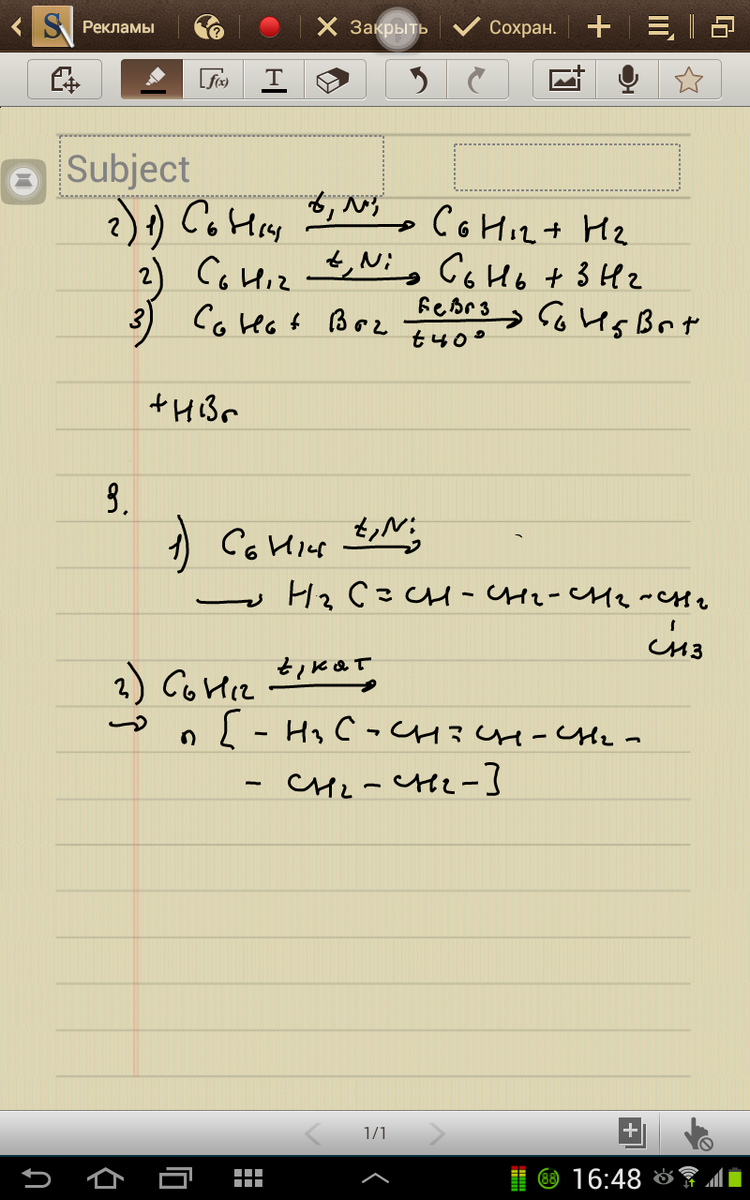 Рекламы Закрыть Сохран.
f(x) T
Subject
2) 1) C6H14 t, Ni → C6H12 + H2
2) C6H12 t, Ni → C6H6 + 3H2
3) C6H6 + Br2 FeBr3 t40° → C6H5Br +
+ HBr
3.
1) C6H14 t, Ni →
→ H2C = CH - CH2 - CH2 - CH2
CH3
2) C6H12 t, кат →
→ n [ - H2C - CH = CH - CH2 -
- CH2 - CH2 - ]
1/1
88 16:48